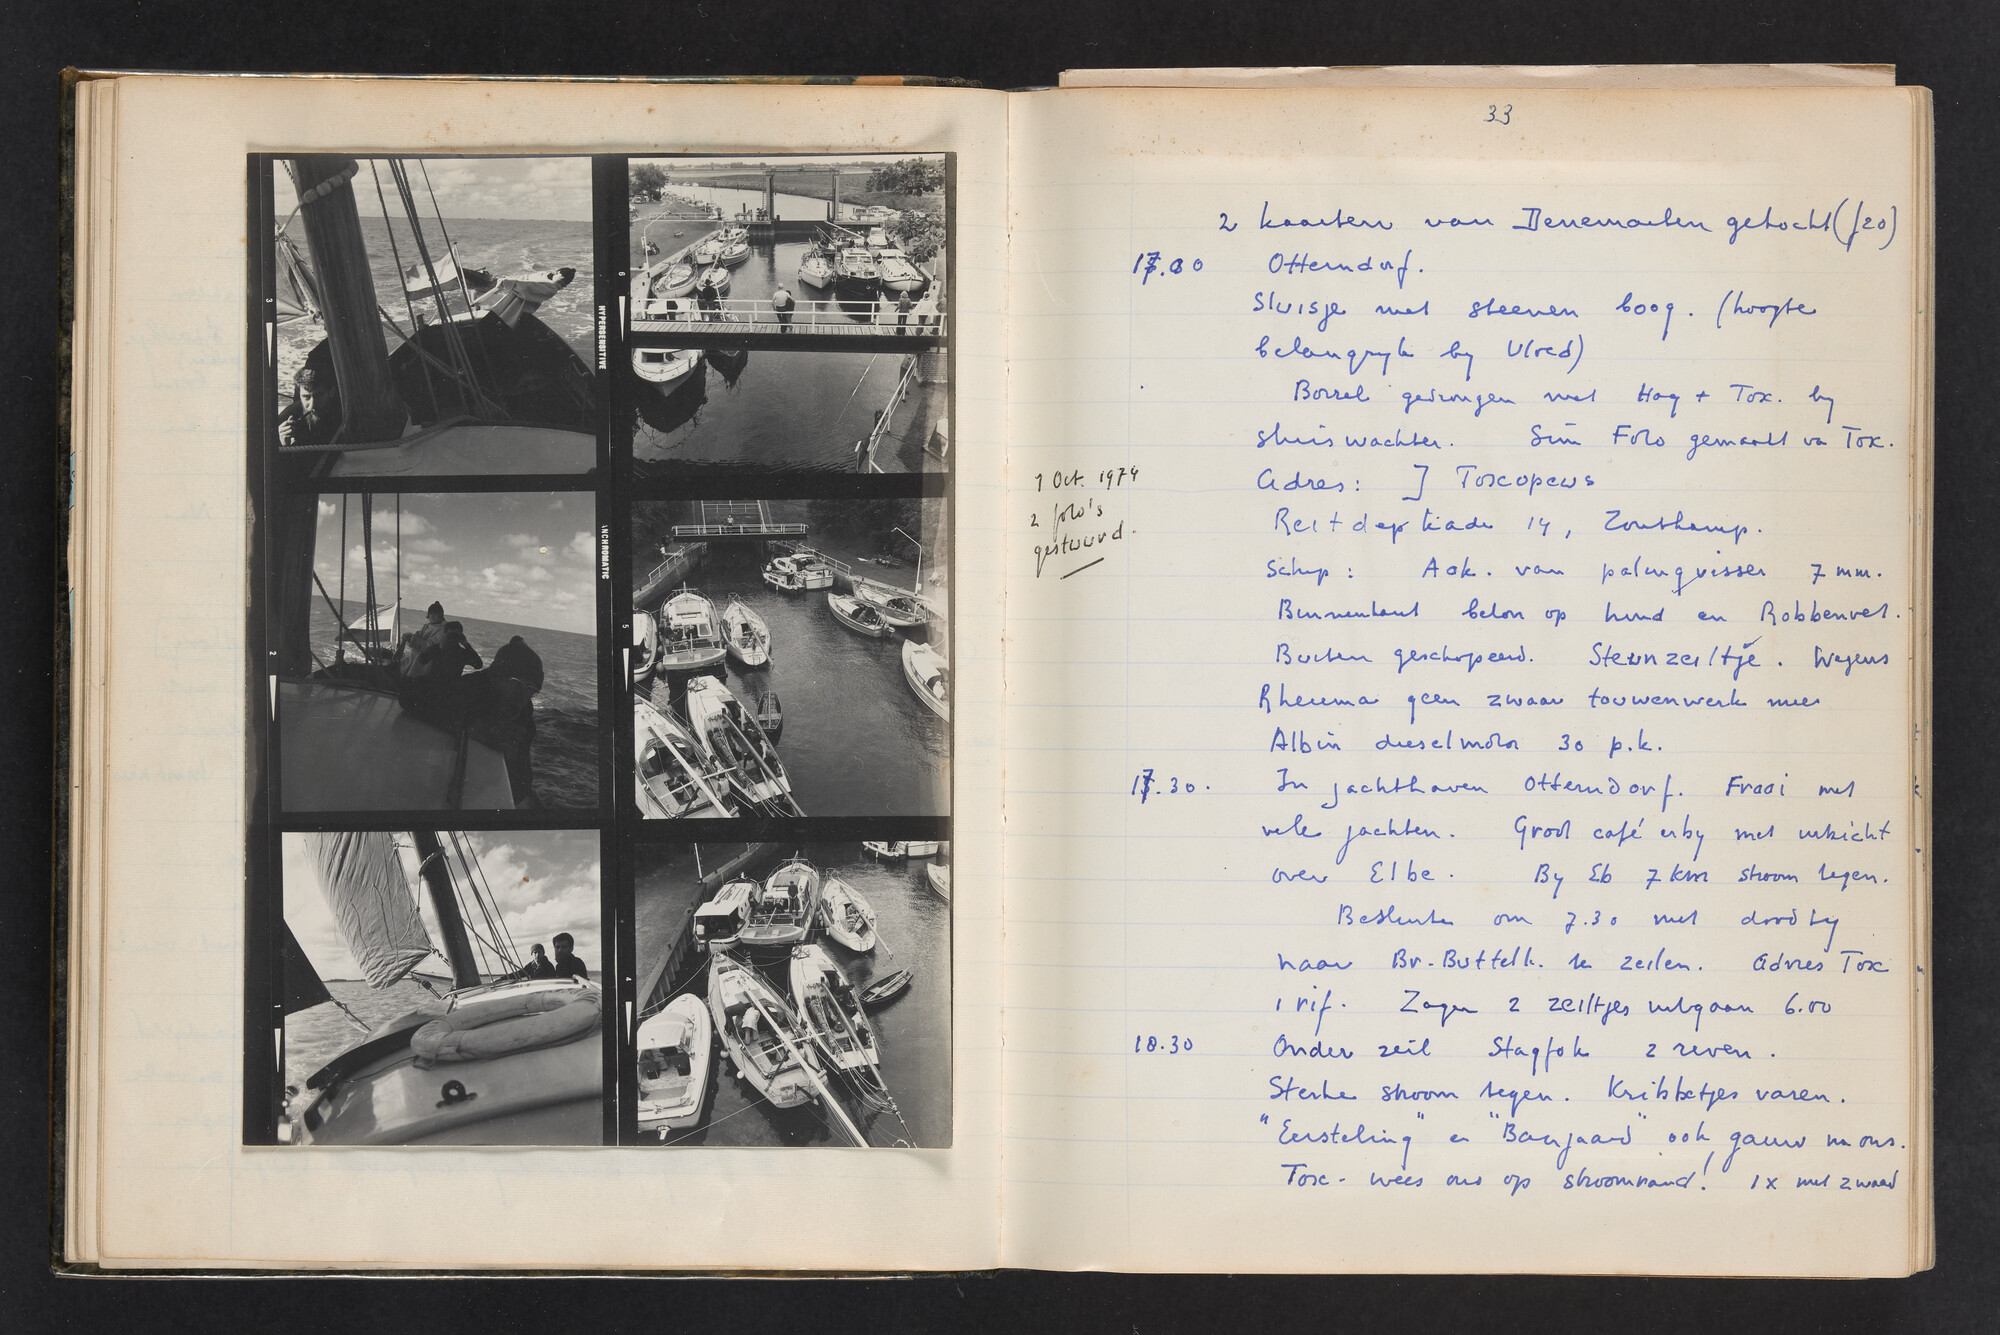 3
HYPERSENSITIVE
2
INCHROMATIC
1
6
5
4
33
2 kaarten van Denemarken gekocht (f20)
17.00 Otterndorf.
Sluisje met steenen boog. (hoogte
belangryk by Vloed)
Borrel gedrongen met Hog + Tox. by
sluiswachter. Sim Foto gemaakt va Tox.
Adres: ] Toxopeus
1 Oct. 1974
2 foto's
gestuurd.
Reitdepkade 14, Zoutkamp.
Schip: Aak. van palingvisser 7 mm.
Binnenkant beton op hund en Robbenvet.
Buiten geschopeerd. Steunzeiltje. Wegens
Rheuma geen zwaar touwenwerk meer
Albin dieselmotor 30 p.k.
17.30. In jachthaven Otterndorf. Fraai met
vele jachten. Groot café erby met uitzicht
over Elbe. By Eb 7 km stroom tegen.
Besluiten om 7.30 met doodty
naar Br-Buttelk. te zeilen. Advies Tox
1 rif. Zagen 2 zeiltjes uitgaan 6.00
18.30 Onder zeil Stagfok 2 reven.
Sterke stroom tegen. Kribbetjes varen.
"Eersteling" en "Banjaard" ook gauw na ons.
Tox - wees ons op stroomrand! 1x met zwaard